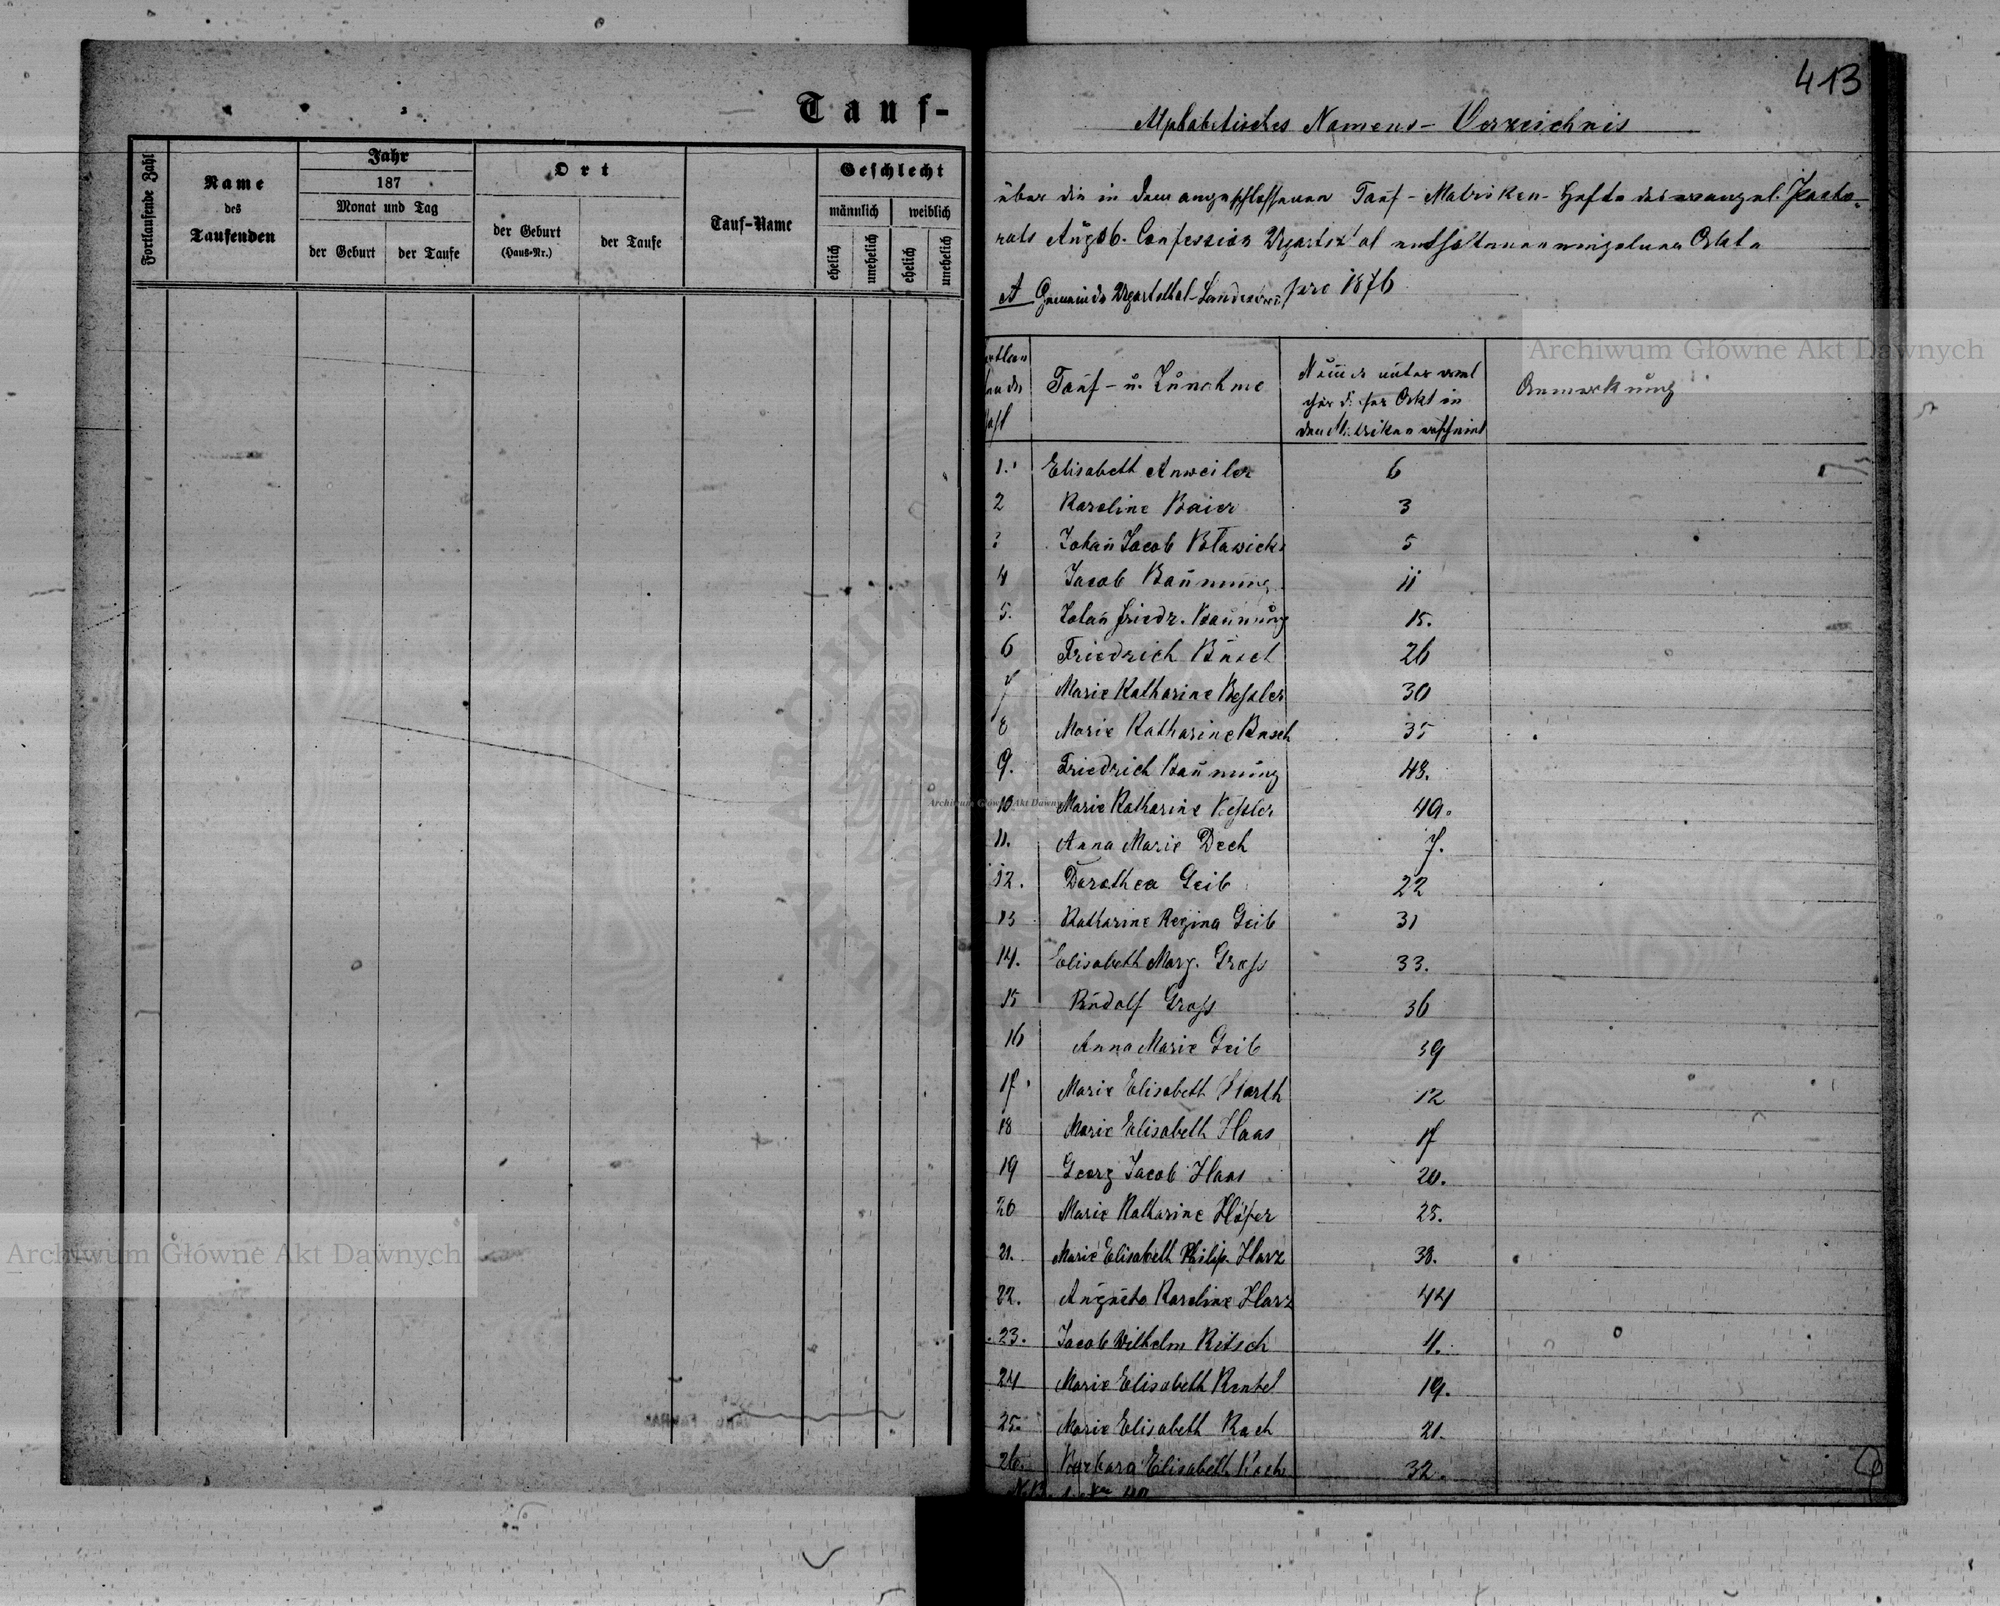 Tauf-
Fortlaufende Zahl
Name
des
Taufenden
Jahr
187
Monat und Tag
der Geburt
der Taufe
Ort
der Geburt
(Haus-Nr.)
der Taufe
Tauf-Name
Geschlecht
männlich
weiblich
ehelich
unehelich
ehelich
unehelich
413
Alphabetisches Namens-Verzeichnis
über die in dem angeschlossenen Tauf-Matriken-Hefte des evangel. Pasto-
rats Augsb. Confession enthaltenen einzelnen Akte
A Gemeinde pro 1876
Tauf- u. Zuname
Anmerkung
1. Elisabeth Anweiler 6
2 Karoline Baier 3
3 Johañ Jacob 5
4 Jacob Baumung 11
5. Johañ Friedr. Baumung 15.
6 Friedrich Büsel 26
7 Marie Katharine Beßler 30
8 Marie Katharine Busch 35
9. Friedrich Baumung 43.
10 Marie Katharine Keßler 49.
11. Anna Marie Dech 7.
12. Dorothea Geib 22
13 Katharine Regina Geib 31
14. Elisabeth Marg. Groß 33.
15 Rudolf Groß 36
16 Anna Marie Geib 39
17. Marie Elisabeth Harth 12
18 Marie Elisabeth Haas 17
19 Georg Jacob Haas 20.
20 Marie Katharine Höfer 25.
21. Marie Elisabeth Philip. Harz 38.
22. Auguste Karoline Harz 44
23. Jacob Wilhelm Kitsch 4.
24 Marie Elisabeth 19.
25. Marie Elisabeth Koch 21.
26. Barbara Elisabeth Koch 32.
Archiwum Główne Akt Dawnych
Archiwum Główne Akt Dawnych
Archiwum Główne Akt Dawnych